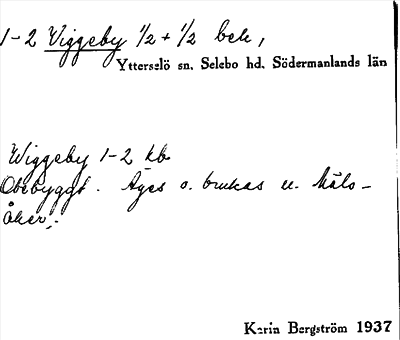 1-2 Viggeby 1/2 + 1/2 beh,
Ytterselö sn. Selebo hd. Södermanlands län
Wiggeby 1-2 kb
Obebyggt. Äges o. brukas u.
åker.
Karin Bergström 1937